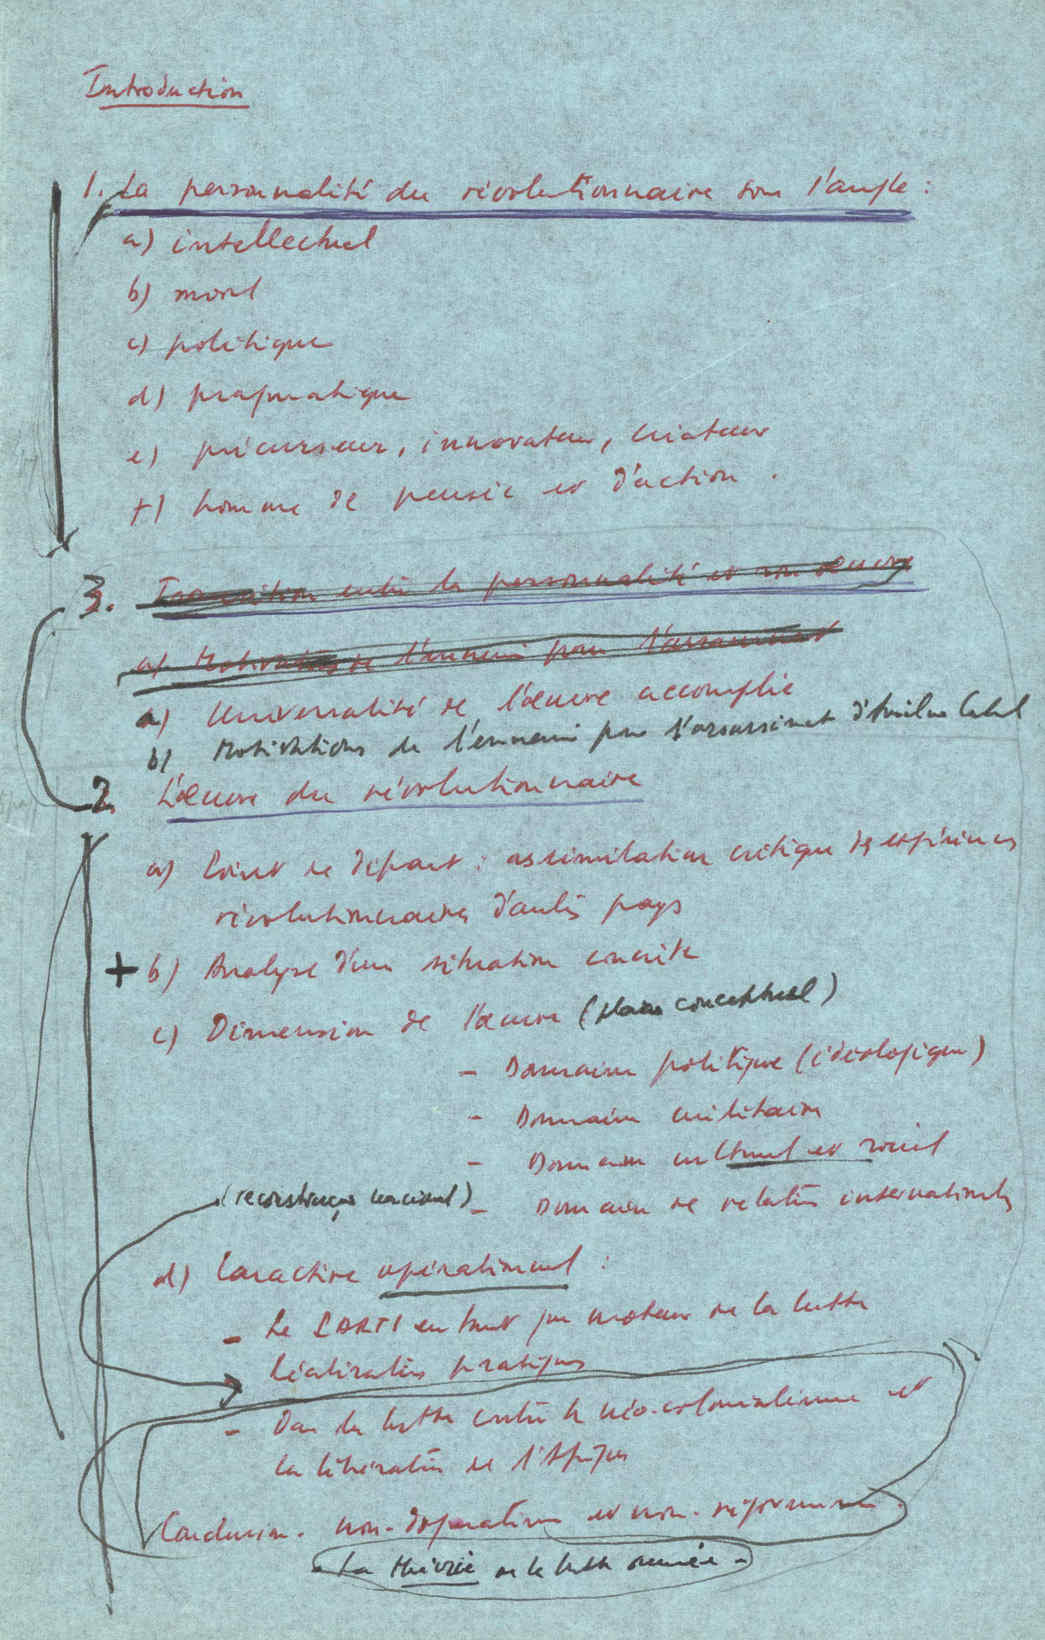 Introduction
1. La personnalité du révolutionnaire sous l'angle :
a) intellectuel
b) moral
c) politique
d) pragmatique
e) précurseur, innovateur, créateur
f) homme de pensée et d'action.
3. Transition entre la personnalité et son œuvre
a) Motivations de l'ennemi pour l'assassinat
a) Universalité de l'œuvre accomplie
b) Motivations de l'ennemi pour l'assassinat d'Amilcar Cabral
2. L'œuvre du révolutionnaire
a) Point de départ : assimilation critique des expériences
révolutionnaires d'autres pays
+ b) Analyse d'une situation concrète
c) Dimension de l'œuvre (plano conceptual)
- Domaine politique (idéologique)
- Domaine militaire
- Domaine culturel et social
(reconstrução nacional) - Domaine de relations internationales
d) Caractère opérationnel :
- Le PARTI en tant que moteur de la lutte
Réalisations pratiques
- Dans la lutte contre le néo-colonialisme et
la libération de l'Afrique
Conclusion. non-dogmatisme et non-réformisme.
- La théorie de la lutte armée -